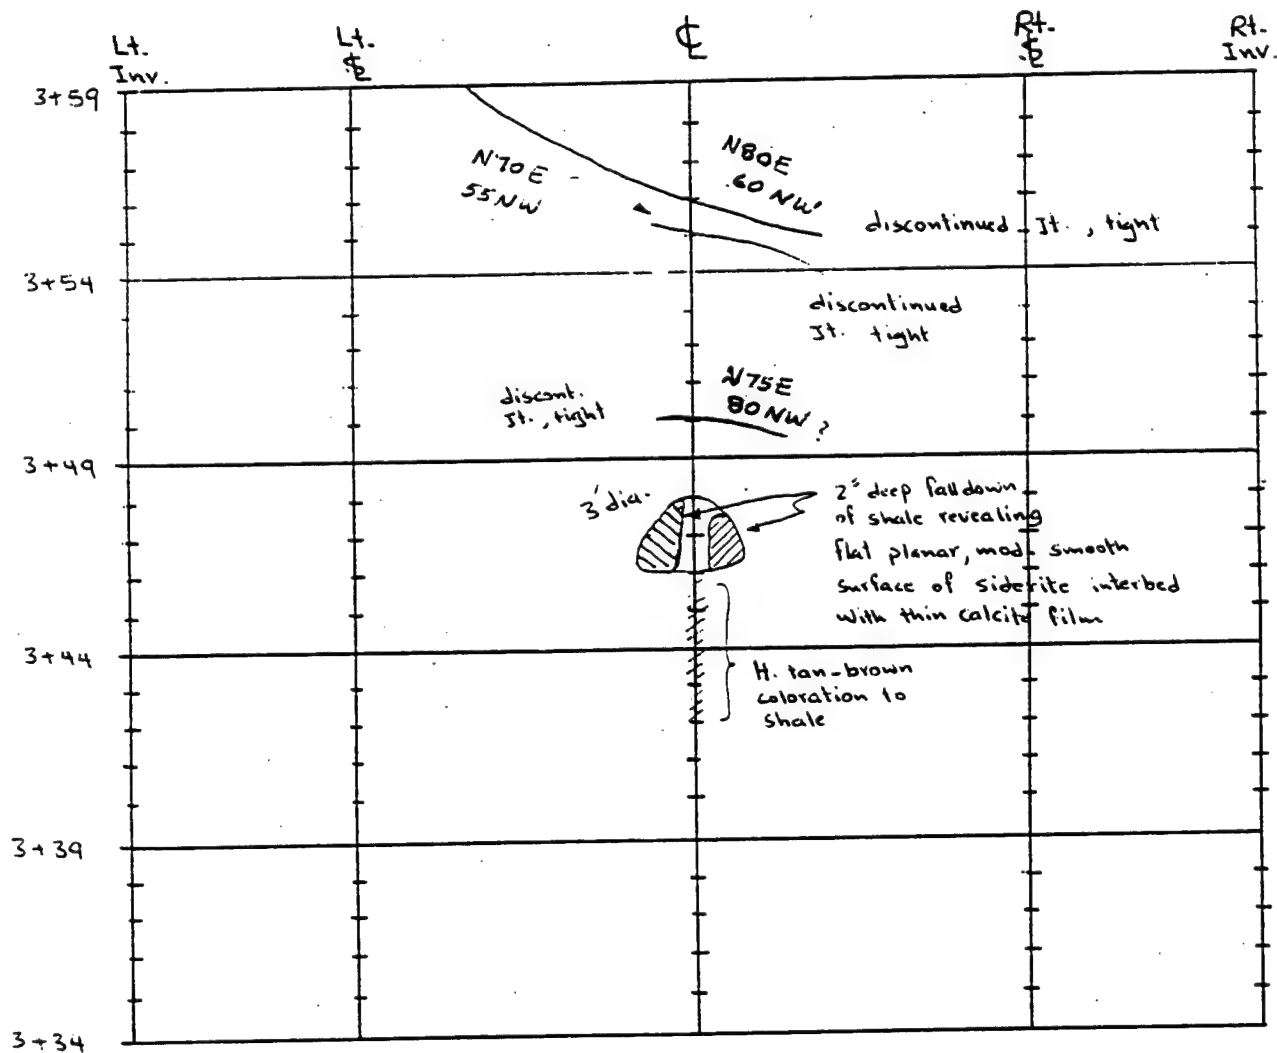 Lt.
Inv.
Lt.
℄
Rt.
Rt.
Inv.
3+59
N70E
55NW
N80E
60 NW
discontinued Jt., tight
3+54
discontinued
Jt. tight
discont.
Jt., tight
N75E
80 NW ?
3+49
3' dia.
2" deep falldown
of shale revealing
flat planar, mod. smooth
surface of siderite interbed
with thin calcite film
3+44
tan-brown
coloration to
shale
3+39
3+34